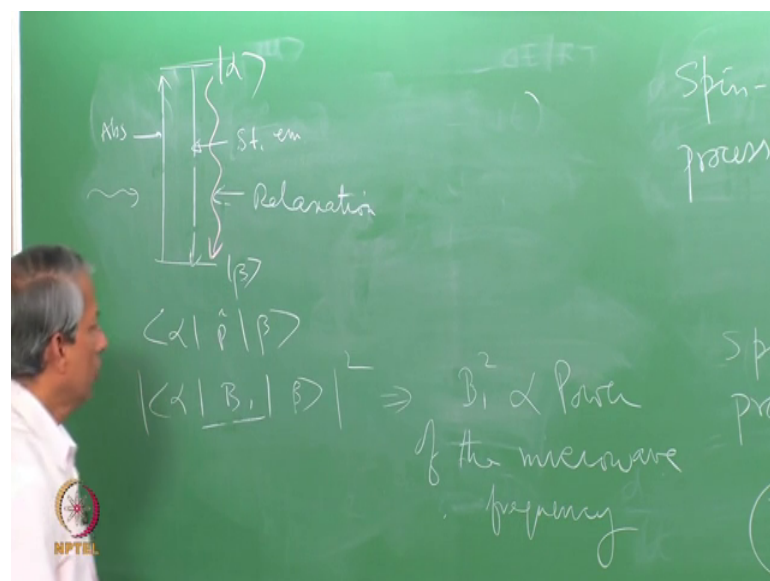 |α⟩
Abs
St. em
Relaxation
|β⟩
⟨α| p̂ |β⟩
|⟨α| B₁ |β⟩|² ⇒ B₁² α Power
of the microwave
frequency
Spin-
process
Sp
pro
NPTEL